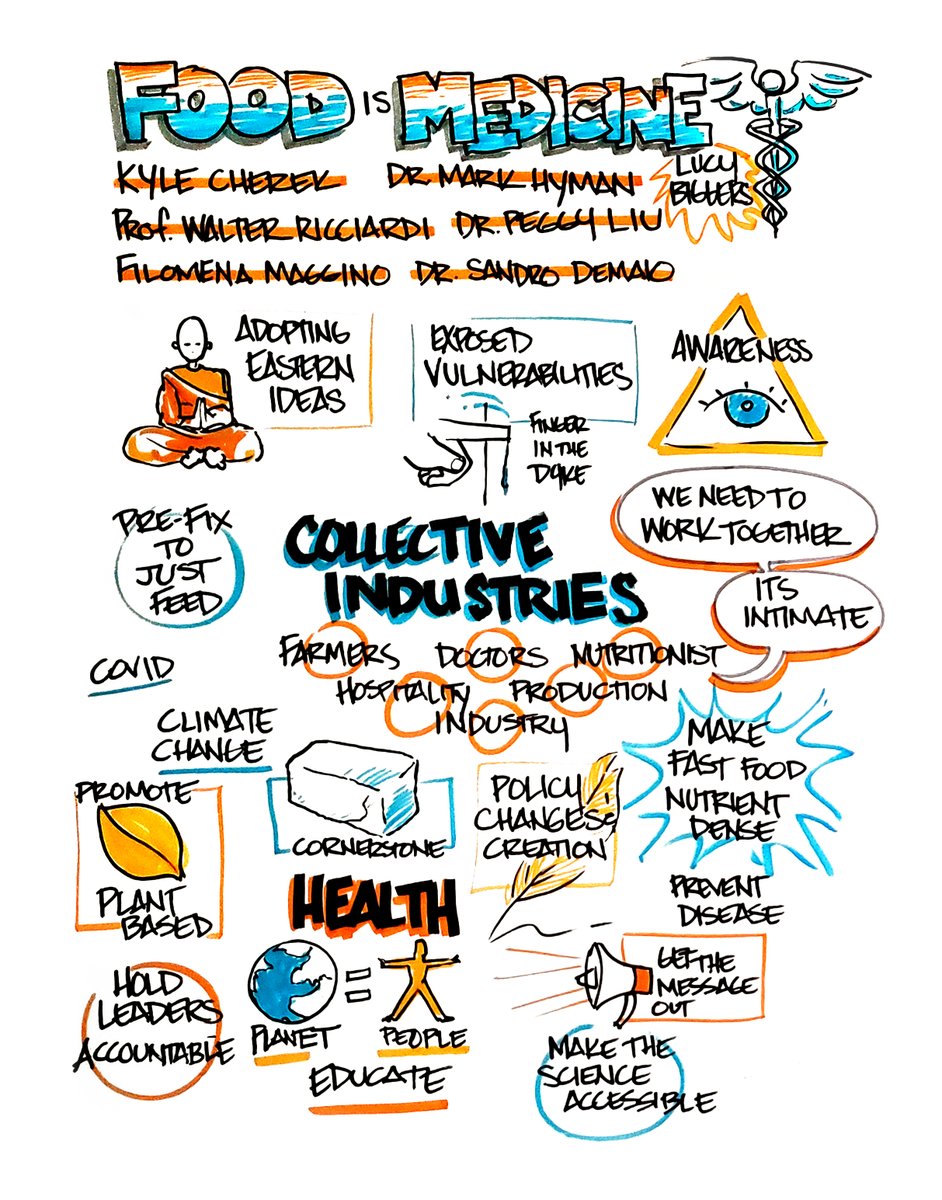 FOOD IS MEDICINE
KYLE CHEREK
DR. MARK HYMAN
LUCY
BIGGERS
Prof. WALTER RICCIARDI
DR. PEGGY LIU
FILOMENA MAGGINO
DR. SANDRO DEMAIO
ADOPTING
EASTERN
IDEAS
EXPOSED
VULNERABILITIES
FINGER
IN THE
DYKE
AWARENESS
WE NEED TO
WORK TOGETHER
ITS
INTIMATE
PRE-FIX
TO
JUST
FEED
COLLECTIVE
INDUSTRIES
FARMERS
DOCTORS
NUTRITIONIST
HOSPITALITY
PRODUCTION
INDUSTRY
COVID
CLIMATE
CHANGE
MAKE
FAST FOOD
NUTRIENT
DENSE
PROMOTE
PLANT
BASED
CORNERSTONE
HEALTH
POLICY
CHANGES &
CREATION
PREVENT
DISEASE
GET THE
MESSAGE
OUT
HOLD
LEADERS
ACCOUNTABLE
PLANET
=
PEOPLE
EDUCATE
MAKE THE
SCIENCE
ACCESSIBLE